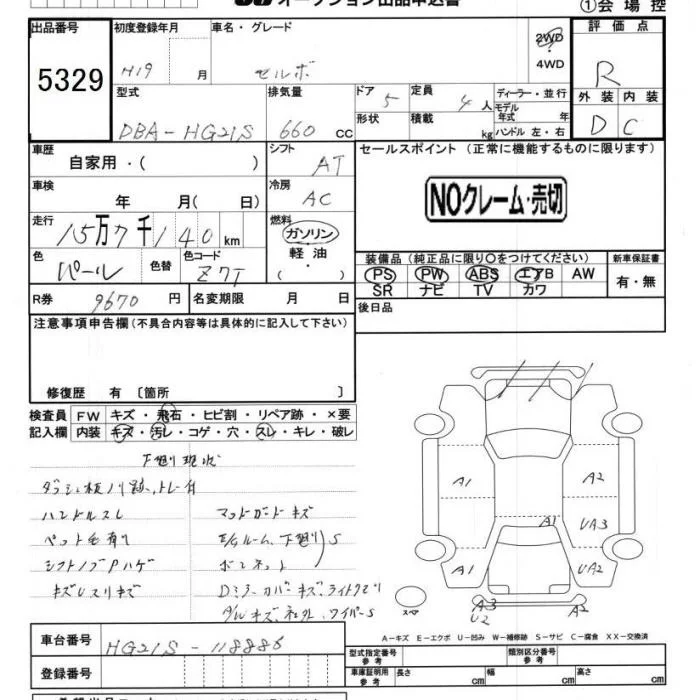 オークション出品申込書
①会場控
出品番号
5329
初度登録年月
H19 月
車名・グレード
セルボ
2WD
4WD
評価点
R
外装 内装
D C
型式
DBA-HG21S
排気量
660 cc
ドア 5
形状
定員 4 人
積載 kg
ディーラー・並行
モデル年式 年
ハンドル 左・右
車歴
自家用・( )
シフト
AT
セールスポイント (正常に機能するものに限ります)
NOクレーム・売切
車検
年 月( 日)
冷房
AC
走行
15万7千140km
燃料
ガソリン
軽油
・
色
パール
色替
色コード
Z7T
装備品 (純正品に限り○をつけてください)
PS PW ABS エアB AW
SR ナビ TV カワ
新車保証書
有・無
R券 9670 円
名変期限 月 日
後日品
注意事項申告欄(不具合内容等は具体的に記入して下さい)
修復歴 有 〔箇所 〕
検査員記入欄
FW キズ・飛石・ヒビ割・リペア跡・×要
内装 キズ・汚レ・コゲ・穴・スレ・キレ・破レ
下廻り現状
ダッシュ板ノリ跡、トレー付
ハンドルスレ
ペット毛有り
シフトノブPハゲ
キズUスリキズ
マッドガードキズ
E/Gルーム、下廻り S
ボンネット
Dミラーカバーキズ、ライトクモリ
A1
A2
A1
UA3
A1
UA2
スペア
A3
U2
A2
A-キズ E-エクボ U-凹み W-補修跡 S-サビ C-腐食 XX-交換済
車台番号
HG21S-118886
登録番号
型式指定番号 参考
類別区分番号 参考
車庫証明用 参考
長さ cm
幅 cm
高さ cm